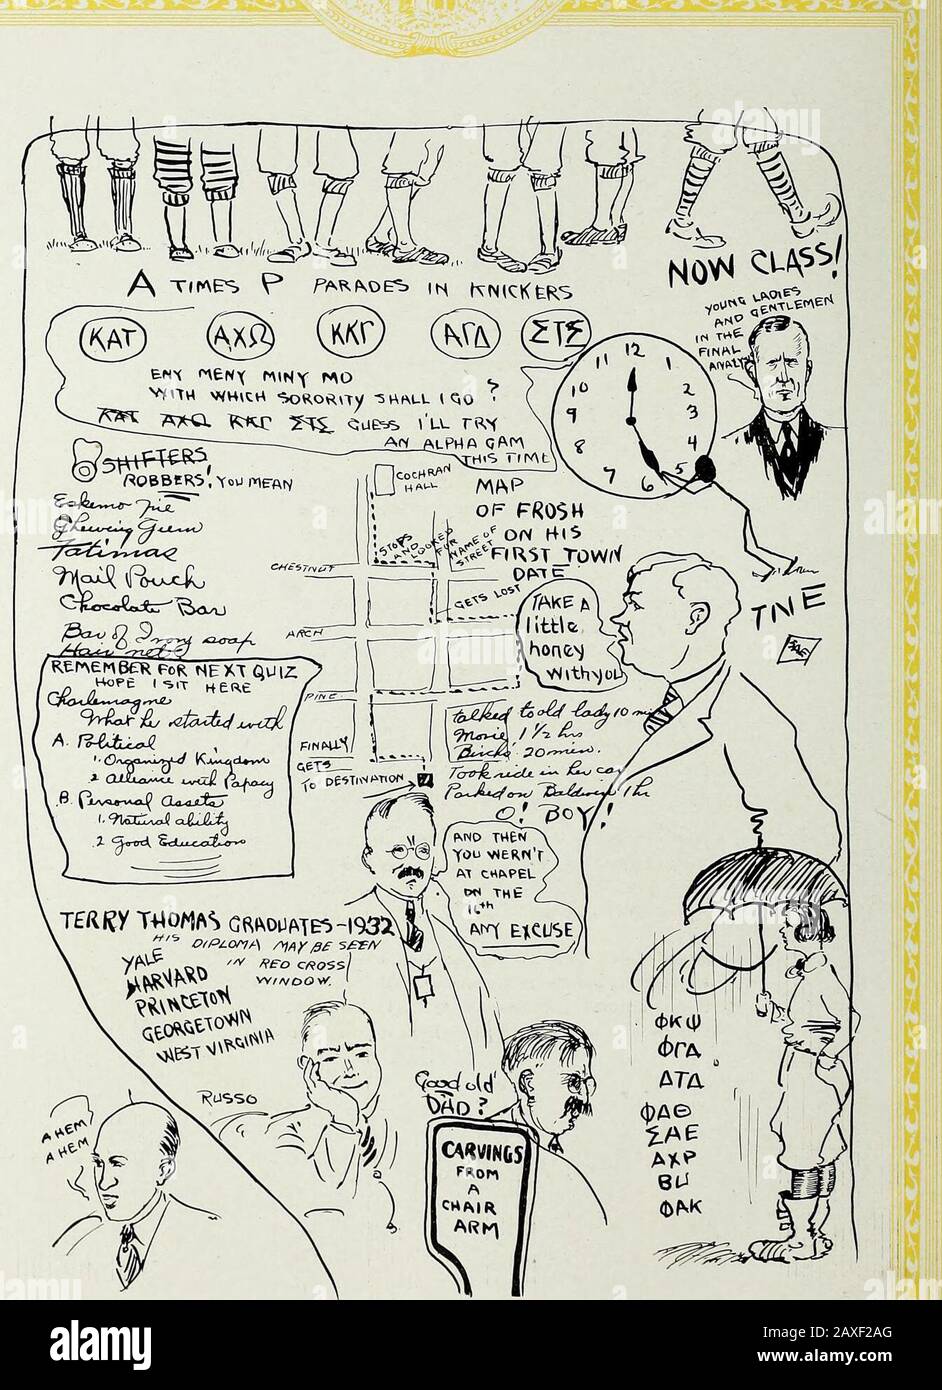 A TIMES P PARADES IN KNICKERS
NOW CLASS!
YOUNG LADIES
AND GENTLEMEN
IN THE
FINAL
ANALYSIS
ΚΑΤ ΑΧΩ ΚΚΓ ΑΓΔ ΣΤΣ
ENY MENY MINY MO
WITH WHICH SORORITY SHALL I GO ?
ΚΑΤ ΑΧΩ ΚΚΓ ΣΤΣ GUESS I'LL TRY
AN ALPHA GAM
THIS TIME
11 12 1
10 2
9 3
8 4
7 6 5
SHIFTERS
ROBBERS, YOU MEAN
Eskimo Pie
Chewing Gum
Fatimas
Mail Pouch
Chocolate Bar
Bar of Ivory soap
Hair net
COCHRAN
HALL
MAP
OF FROSH
ON HIS
FIRST TOWN
DATE
STOPS
AND LOOKED
FOR
NAME OF
STREET
CHESTNUT
GETS LOST
ARCH
PINE
FINALLY
GETS
TO DESTINATION
TAKE A
little
honey
with you
TNE
ΣΑΕ
REMEMBER FOR NEXT QUIZ
HOPE I SIT HERE
Charlemagne
What he started with
A. Political
1. Organized Kingdom
2 alliance with Papacy
B. Personal assets
1. Natural ability
2 Good Education
talked to old lady 10 min
Movie, 1 1/2 hrs
Birchs' 20 min.
Took ride in her car
Parked on Baldwin 1 hr
O! BOY!
AND THEN
YOU WERN'T
AT CHAPEL
ON THE
16th
ANY EXCUSE
TERRY THOMAS GRADUATES-1932
HIS DIPLOMA MAY BE SEEN
IN RED CROSS
WINDOW.
YALE
HARVARD
PRINCETON
GEORGETOWN
WEST VIRGINIA
RUSSO
AHEM
AHEM
Good old
DAD?
CARVINGS
FROM
A
CHAIR
ARM
ΦΚΨ
ΦΓΔ
ΔΤΔ
ΦΔΘ
ΣΑΕ
ΔΧΡ
ΒU
ΦΑΚ
alamy
Image ID: 2AXF2AG
www.alamy.com